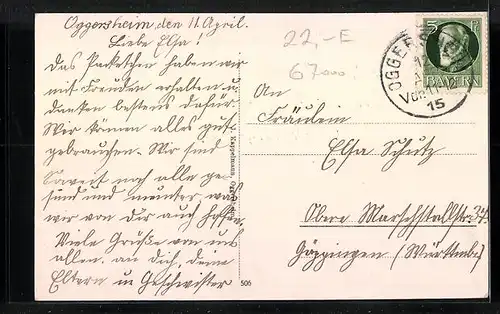 Oggersheim den 11. April.
Liebe Elsa!
Das Packetchen haben wir
mit Freuden erhalten u.
danken bestens dafür.
Wir können alles gut
gebrauchen. Wir sind
Soweit noch alle ge-
sund und munter, was
wir von Dir auch hoffen.
Viele Grüße von uns
allen. an dich, deine
Eltern u Geschwister
22,-E
67000
An
Fräulein
Elsa Schutz
Obere Marschstallstr.
Göppingen (Württemberg)
OGGER
Vor. 11-12
15
5
BAYERN
Kappelmann
506